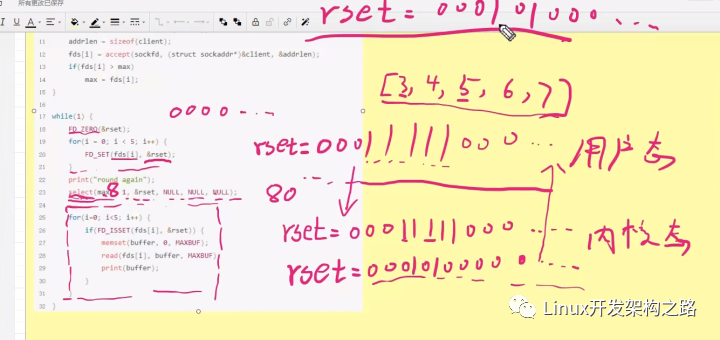 所有更改已保存
rset = 0001 01000 ...
11 addrlen = sizeof(client);
12 fds[i] = accept(sockfd, (struct sockaddr*)&client, &addrlen);
13 if(fds[i] > max)
14 max = fds[i];
15 }
16
17 while(1) {
18 FD_ZERO(&rset);
19 for(i = 0; i < 5; i++) {
20 FD_SET(fds[i], &rset);
21 }
22 print("round again");
23 select(max 1, &rset, NULL, NULL, NULL);
24
25 for(i=0; i<5; i++) {
26 if(FD_ISSET(fds[i], &rset)) {
27 memset(buffer, 0, MAXBUF)
28 read(fds[i], buffer, MAXBUF)
29 print(buffer);
30 }
31 }
32 }
0000 ...
8
80 ...
[3, 4, 5, 6, 7]
rset = 00011111000 ...
用户态
rset = 00011111000 ...
内核态
rset = 0001010000 ...
Linux开发架构之路